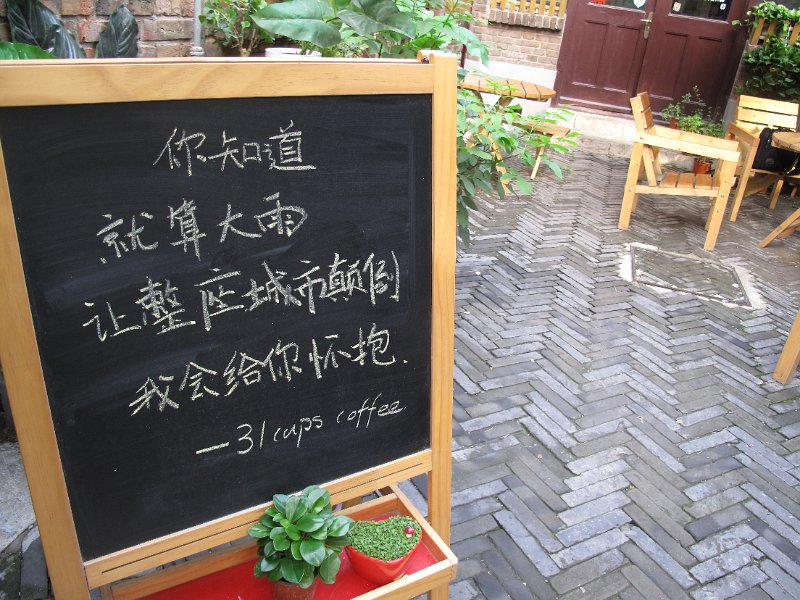 你知道
就算大雨
让整座城市颠倒
我会给你怀抱.
—31cups coffee